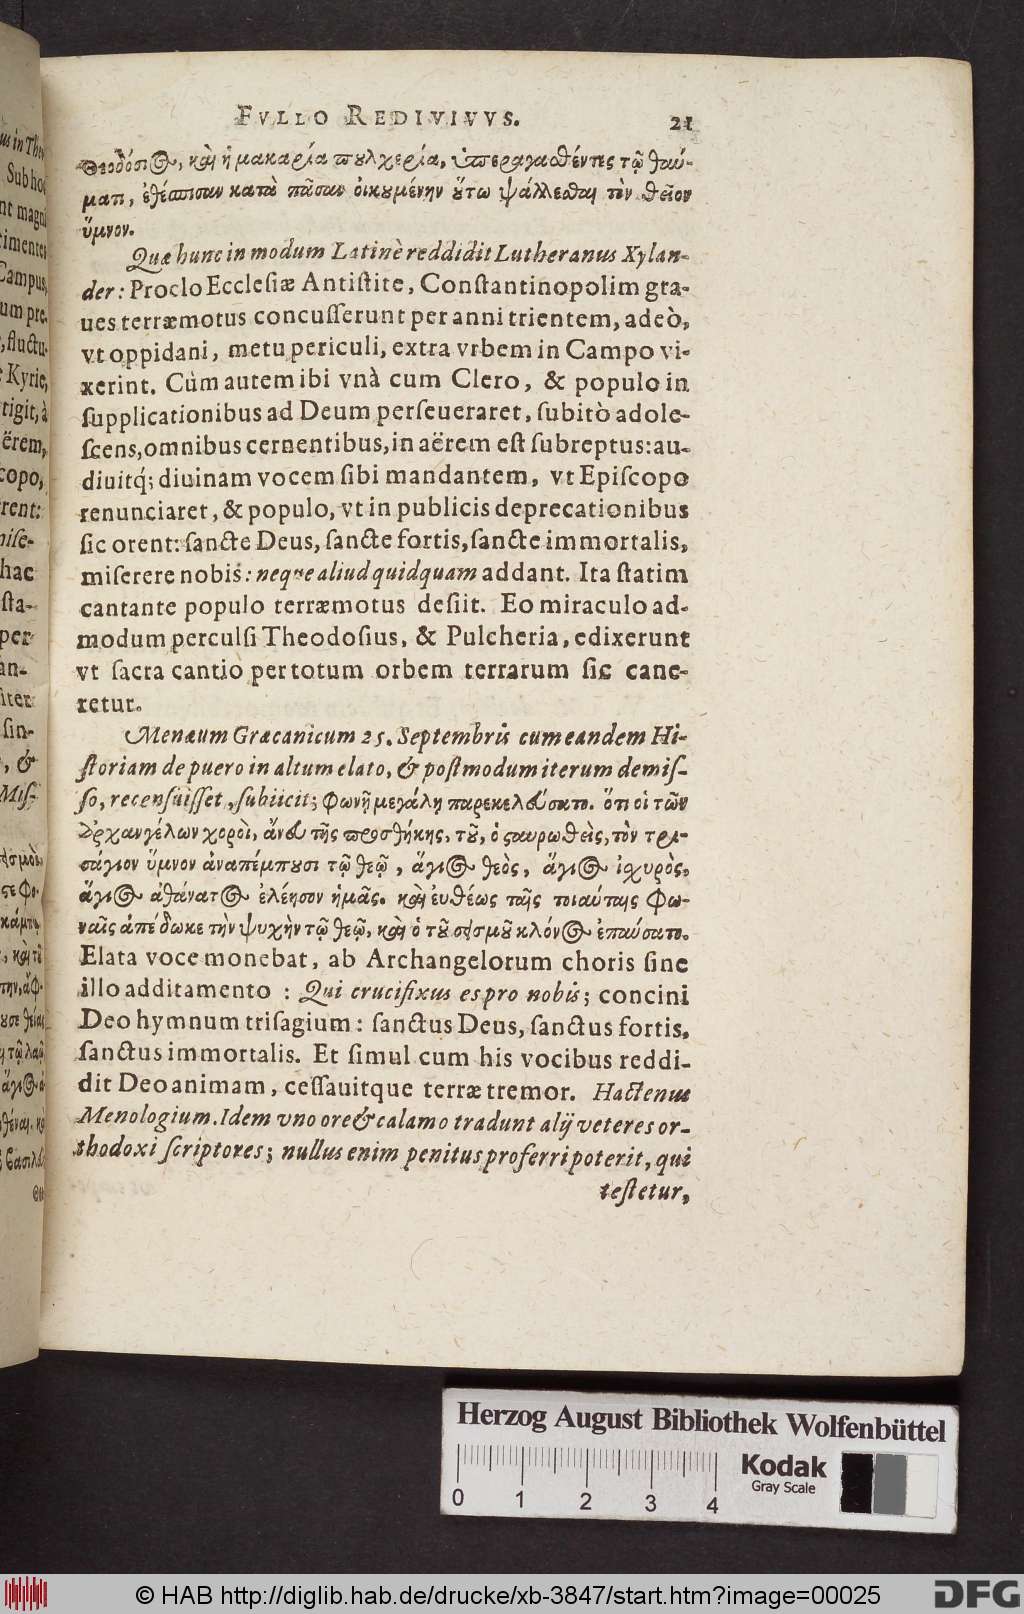 FVLLO REDIVIVVS. 21
Θεοδόσιος, καὶ ἡ μακαρία πουλχερία, ὑπεραγαθέντες τῷ θαύ-
ματι, ἐθέσπισαν κατὰ πᾶσαν οἰκουμένην οὕτω ψάλλεσθαι τὸν θεῖον
ὕμνον.
Quæ hunc in modum Latinè reddidit Lutheranus Xylan-
der: Proclo Ecclesiæ Antistite, Constantinopolim gra-
ues terræmotus concusserunt per anni trientem, adeò,
vt oppidani, metu periculi, extra vrbem in Campo vi-
xerint. Cùm autem ibi vnà cum Clero, & populo in
supplicationibus ad Deum perseueraret, subitò adole-
scens, omnibus cernentibus, in aërem est subreptus: au-
diuitq́; diuinam vocem sibi mandantem, vt Episcopo
renunciaret, & populo, vt in publicis deprecationibus
sic orent: sancte Deus, sancte fortis, sancte immortalis,
miserere nobis: neque aliud quidquam addant. Ita statim
cantante populo terræmotus desiit. Eo miraculo ad-
modum perculsi Theodosius, & Pulcheria, edixerunt
vt sacra cantio per totum orbem terrarum sic cane-
retur.
Menæum Græcanicum 25. Septembris cum eandem Hi-
storiam de puero in altum elato, & postmodum iterum demis-
so, recensuisset, subiicit; Φωνῇ μεγάλῃ παρεκελεύσατο. ὅτι οἱ τῶν
ἀρχαγγέλων χοροὶ, ἄνευ τῆς προσθήκης, τοῦ, ὁ σαυρωθεὶς, τὸν τρι-
σάγιον ὕμνον ἀναπέμπουσι τῷ θεῷ, ἅγιος θεὸς, ἅγιος ἰχυρὸς,
ἅγιος ἀθάνατος ἐλέησον ἡμᾶς. καὶ εὐθέως ταῖς τοιαύταις φω-
ναῖς ἀπέδωκε τὴν ψυχὴν τῷ θεῷ, καὶ ὁ τοῦ σεισμοῦ κλόνος ἐπαύσατο.
Elata voce monebat, ab Archangelorum choris sine
illo additamento : Qui crucifixus es pro nobis; concini
Deo hymnum trisagium: sanctus Deus, sanctus fortis,
sanctus immortalis. Et simul cum his vocibus reddi-
dit Deo animam, cessauitque terræ tremor. Hactenus
Menologium. Idem vno ore & calamo tradunt alij veteres or-
thodoxi scriptores; nullus enim penitus proferri poterit, qui
testetur,
Herzog August Bibliothek Wolfenbüttel
0 1 2 3 4
Kodak
Gray Scale
© HAB http://diglib.hab.de/drucke/xb-3847/start.htm?image=00025
DFG